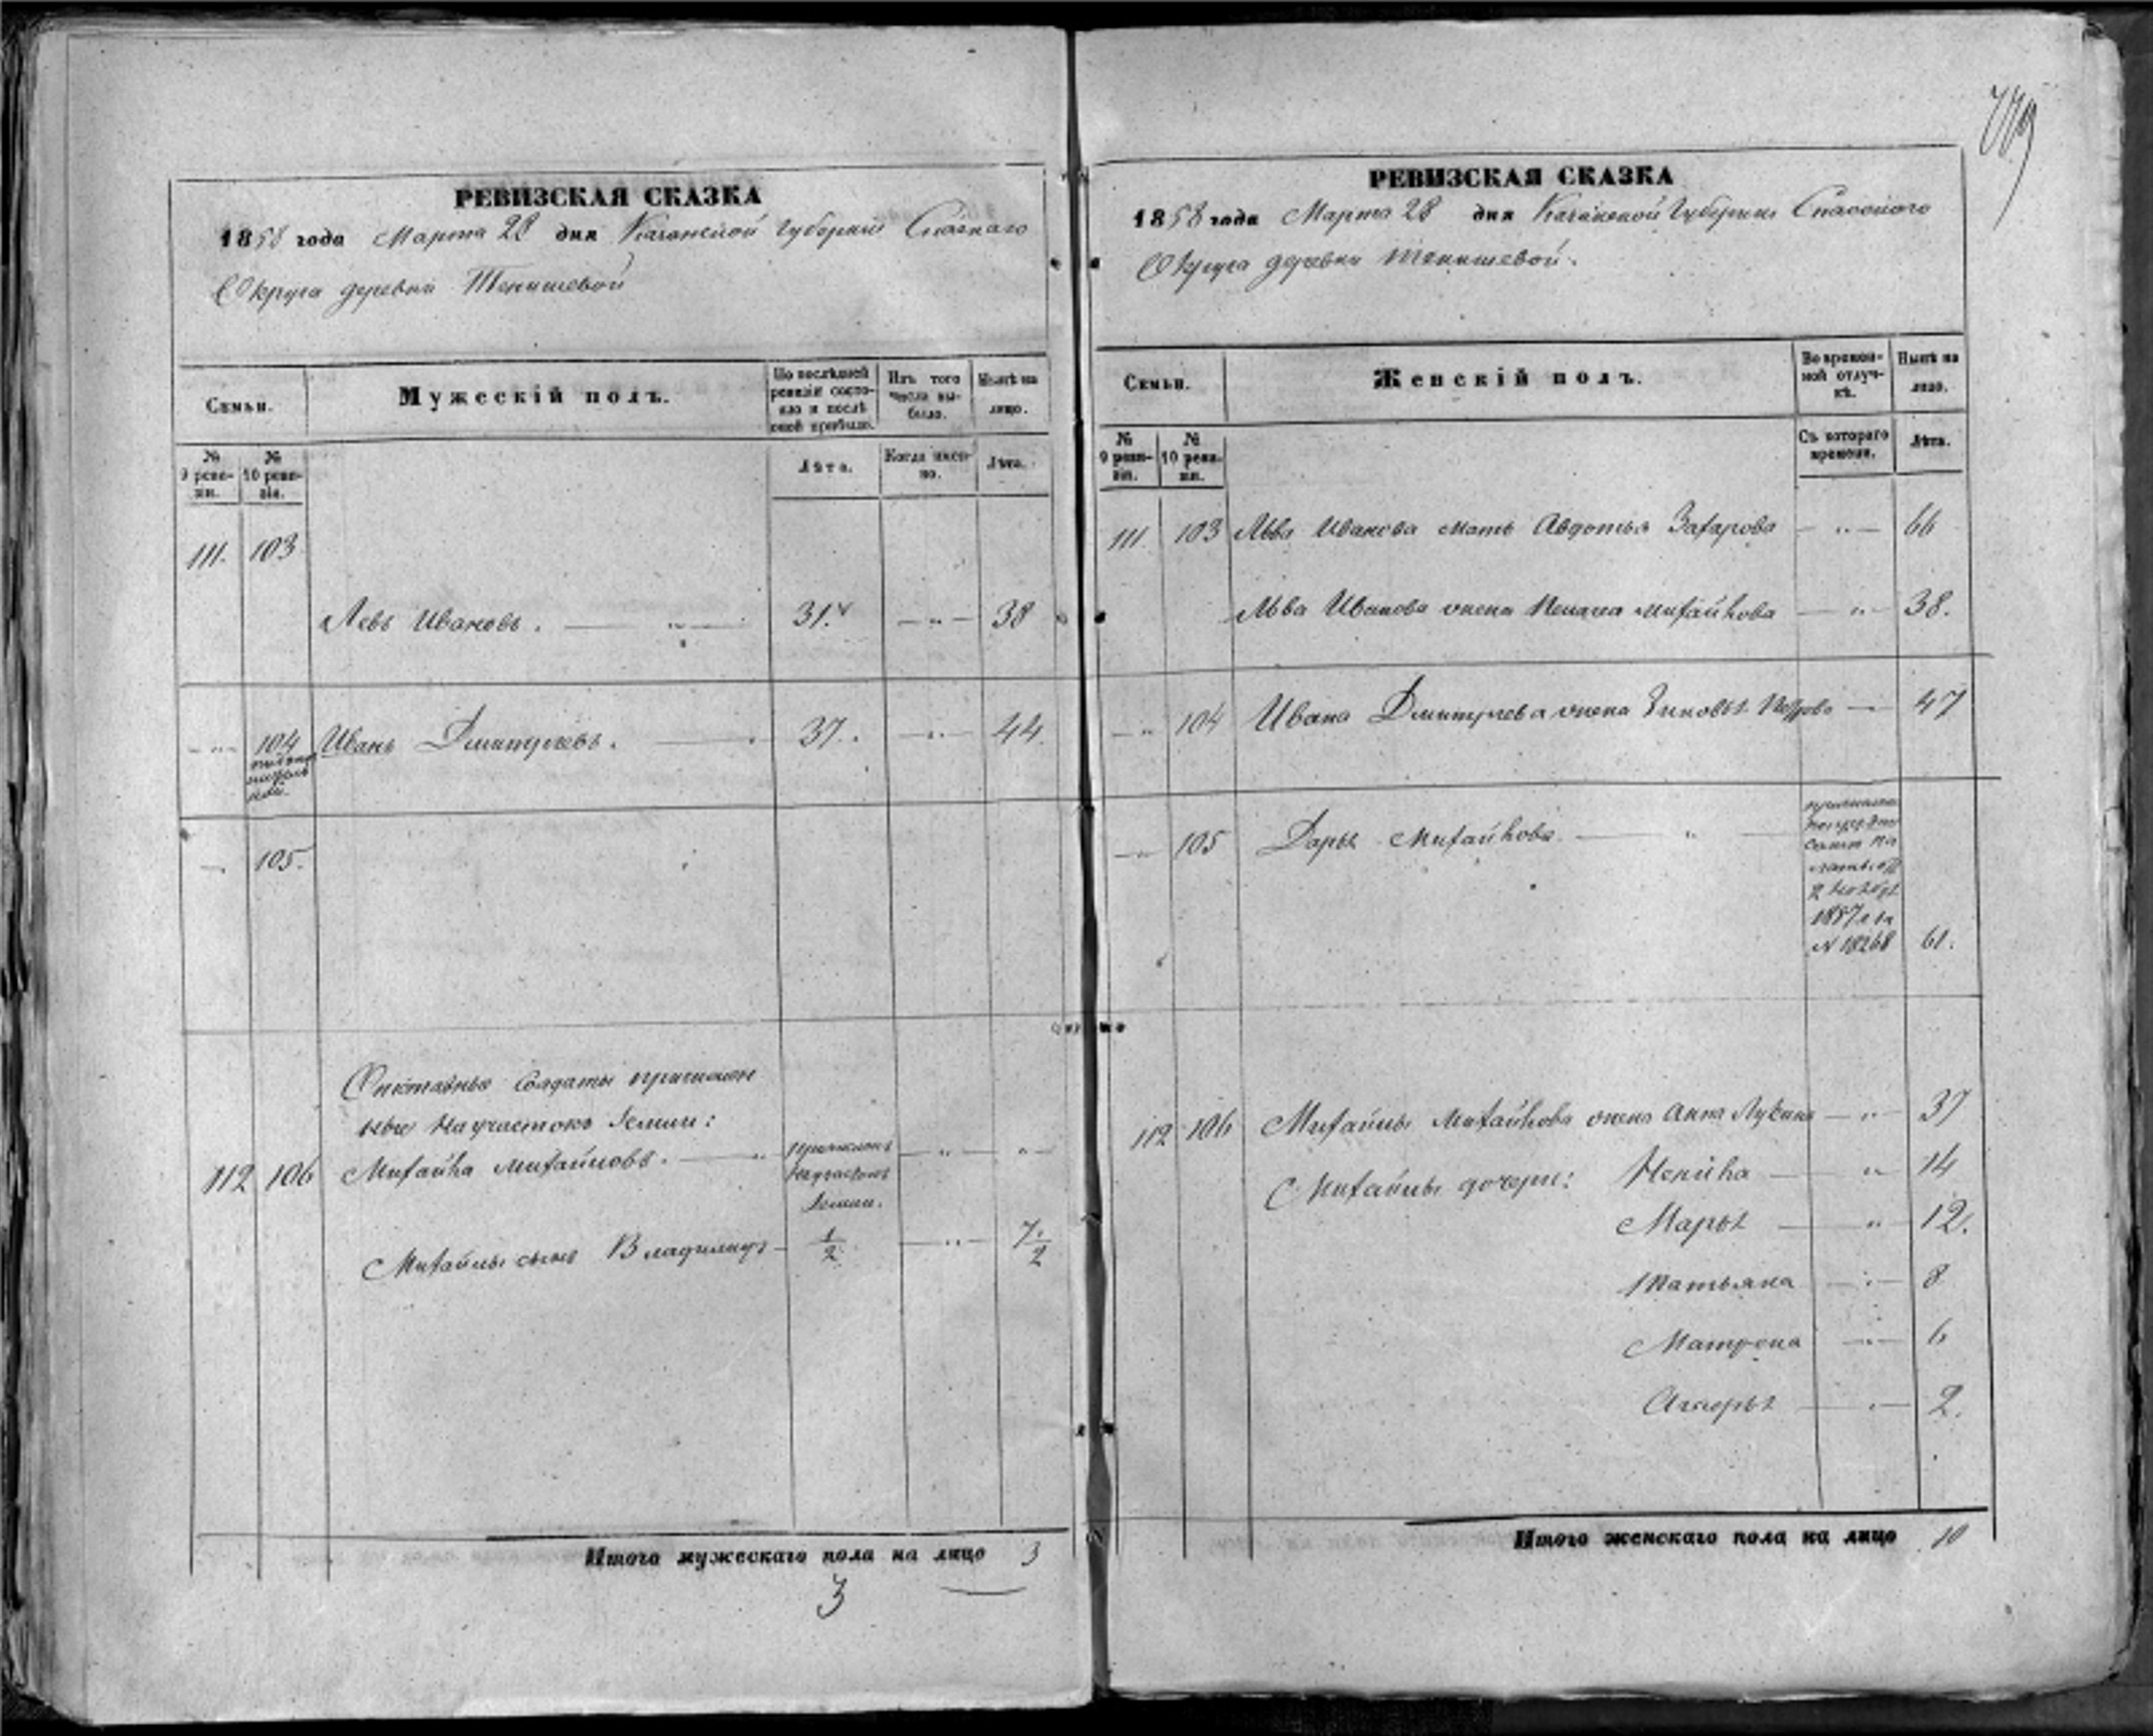 РЕВИЗСКАЯ СКАЗКА
1858 года Марта 28 дня Казанской Губерніи Спаскаго
Округа деревни Тенишевой
Семьи.
Мужескій полъ.
По послѣдней ревизіи состояло и послѣ оной прибыло.
Изъ того числа выбыло.
Нынѣ на лицо.
№ 9 ревизіи.
№ 10 ревизіи.
Лѣта.
Когда именно.
Лѣта.
111. 103
Левъ Ивановъ. — „ — 31. — „ — 38
— „ — 104 Иванъ Дмитріевъ. — 37. — „ — 44.
105.
Отставные солдаты
ные на участокъ земли:
112 106 Михайла Михайловъ. — „ — „ — „
земли.
Михайлы сынъ Владимиръ — 1/2 — „ — 7 1/2
Итого мужескаго пола на лицо 3
3
РЕВИЗСКАЯ СКАЗКА
1858 года Марта 28 дня Казанской Губерніи Спасскаго
Округа деревни Тенишевой.
Семьи.
Женскій полъ.
Во временной отлучкѣ.
Нынѣ на лицо.
№ 9 ревизіи.
№ 10 ревизіи.
Съ котораго времени.
Лѣта.
111 103 Льва Иванова мать Авдотья Захарова — „ — 66
Льва Иванова жена Михайлова — „ — 38.
— „ 104 Ивана Дмитріева жена Зиновья Петрова — 47
— „ — 105 Дарья Михайлова — „ —
2
1857 г за
N 18268 61.
112 106 Михайлы Михайлова жена Анна Лукина — „ — 37
Михайлы дочери: — „ — 14
Марья — „ — 12.
Татьяна — „ — 8
Матрена — „ — 6
— „ — 2.
Итого женскаго пола на лицо 10